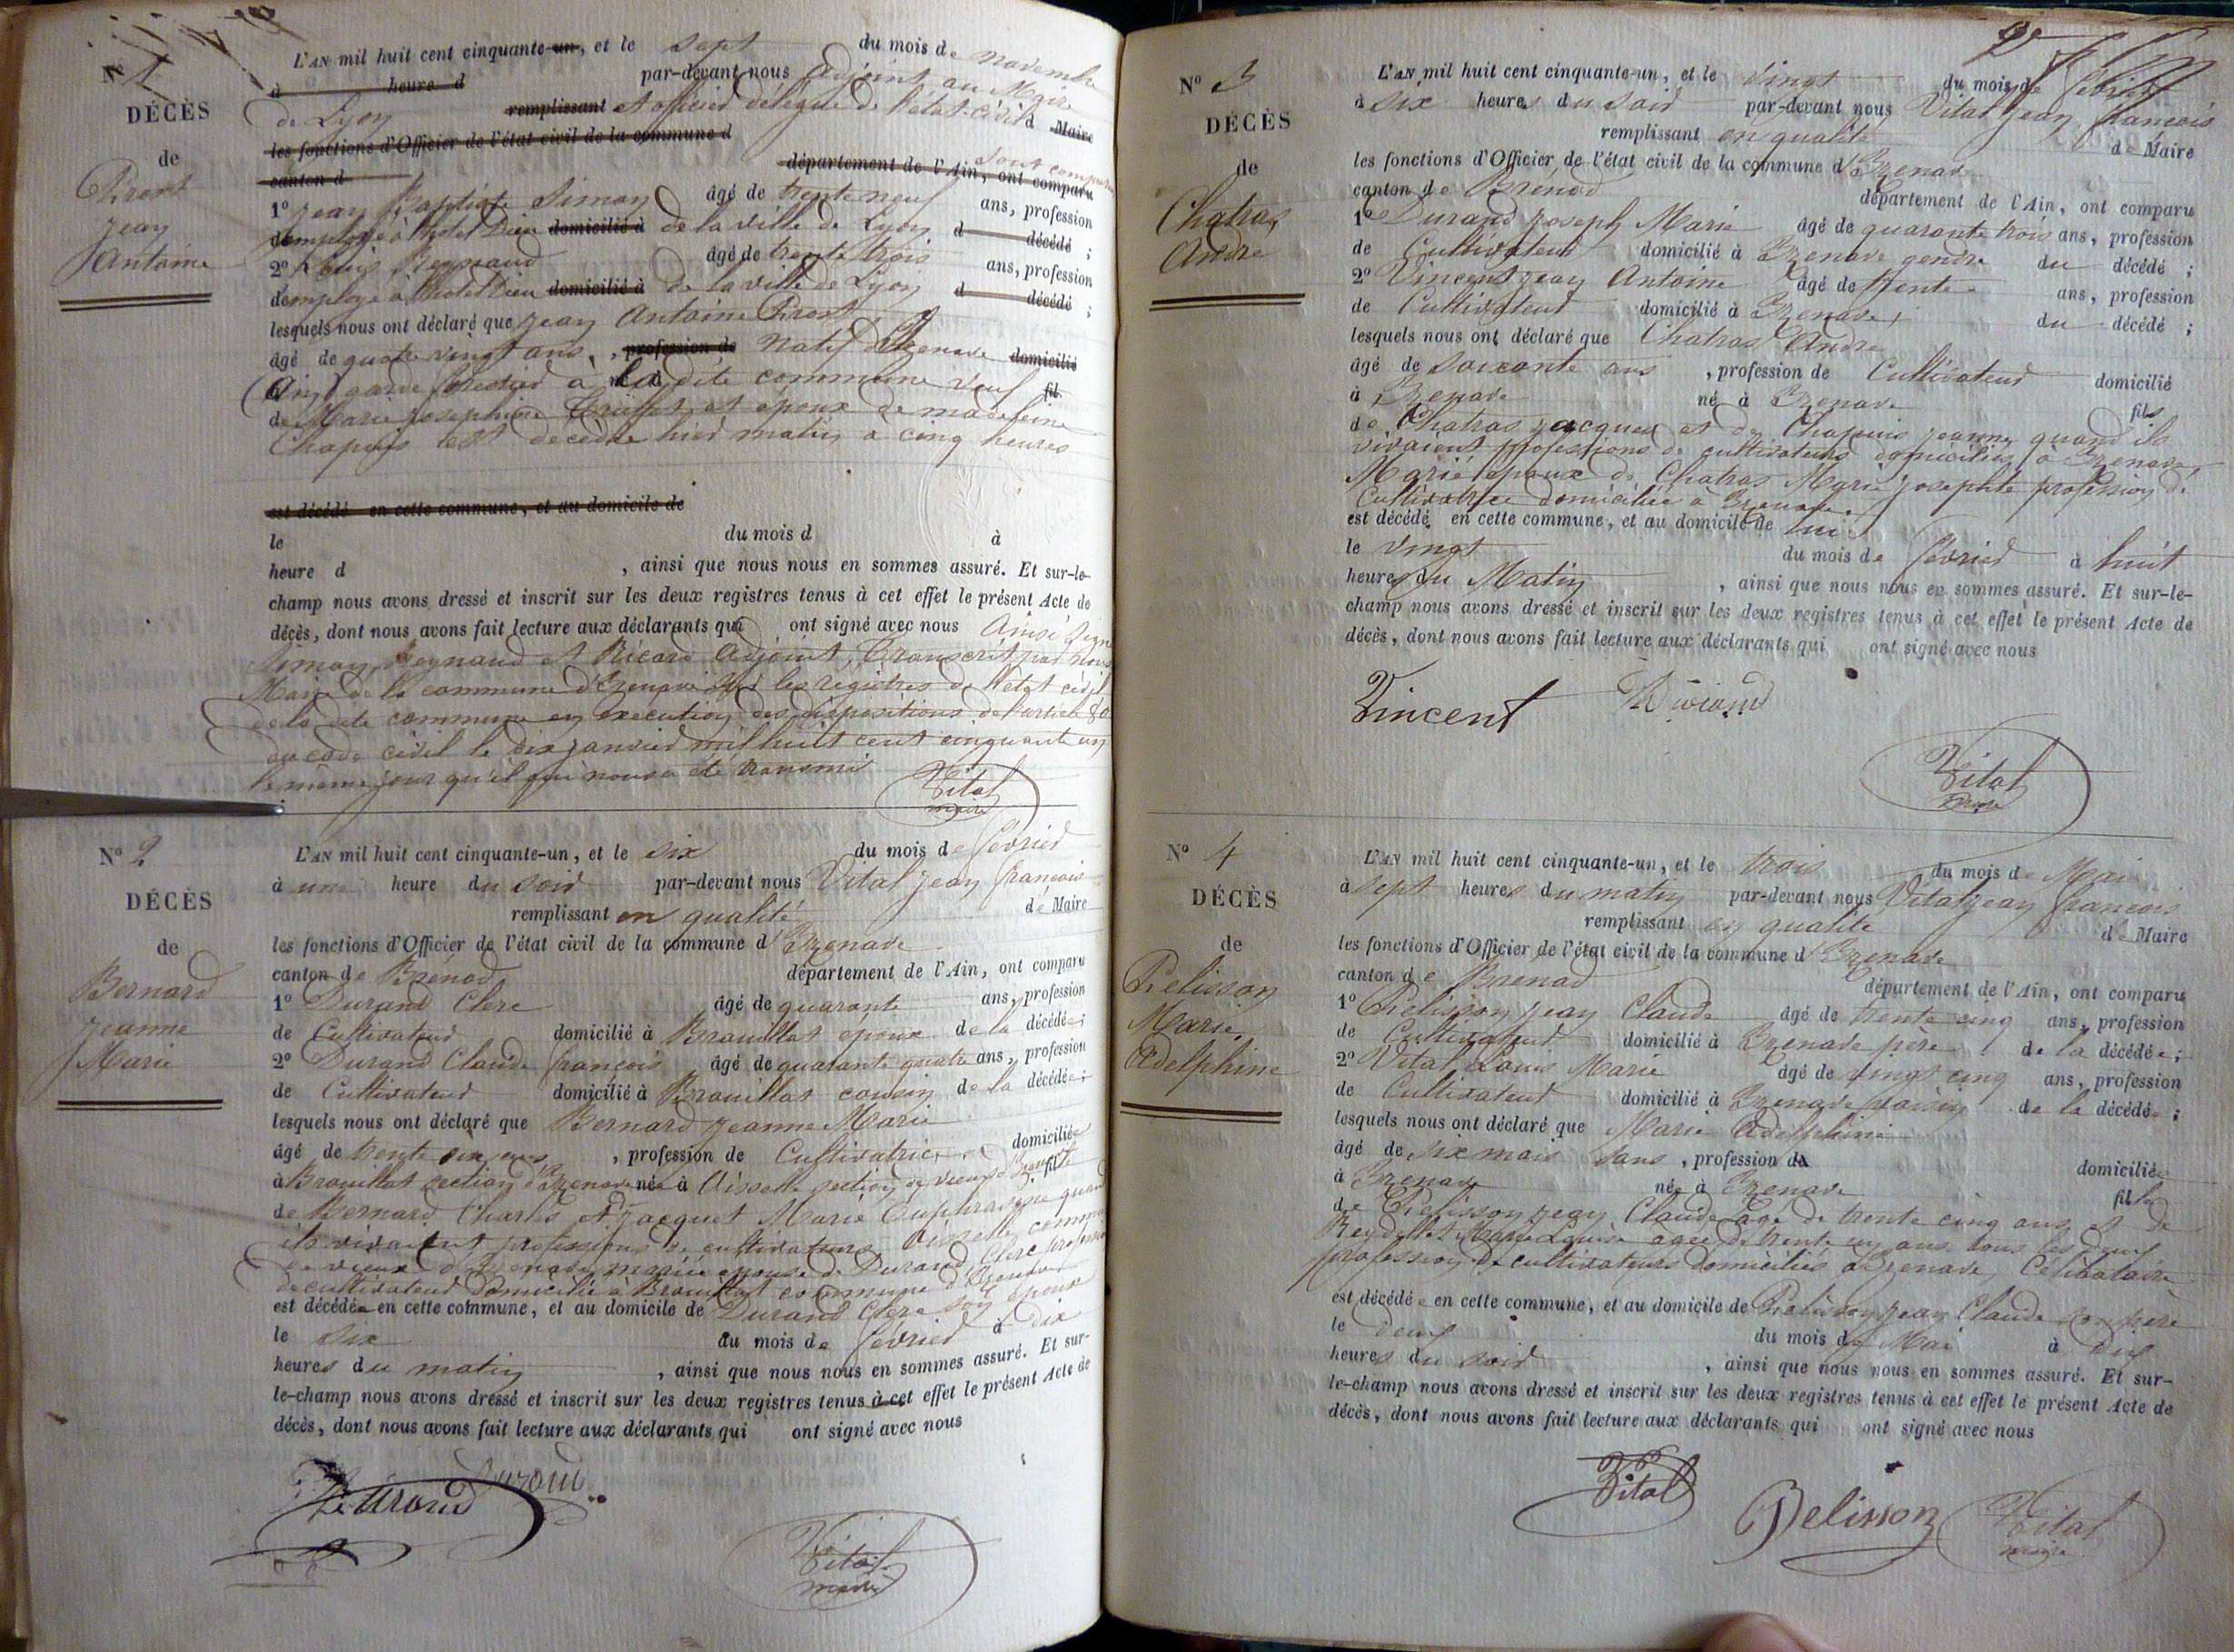 N° 1
DÉCÈS
de
Prost
Jean
Antoine
L'AN mil huit cent cinquante-un, et le sept du mois de novembre
à heure d par-devant nous adjoint au Maire
de Lyon remplissant et officier délégué de l'état-civil d Maire
les fonctions d'Officier de l'état civil de la commune d
canton d département de l'Ain, ont comparu sont comparu
1° Jean Baptiste Simon âgé de trente neuf ans, profession
d'employé à l'hotel Dieu domicilié à de la ville de Lyon d décédé ;
2° Louis Reynaud âgé de trente trois ans, profession
d'employé à l'hotel Dieu domicilié à de la ville de Lyon d décédé ;
lesquels nous ont déclaré que Jean Antoine Prost
âgé de quatre vingt ans, profession de natif d'Izenave domicilié
(Ain) garde forestier à la dite commune veuf fil
de Marie Josephine et époux de madeleine
Chapuis est décédé hier matin à cinq heures
est décédé en cette commune, et au domicile de
le du mois d à
heure d , ainsi que nous nous en sommes assuré. Et sur-le-
champ nous avons dressé et inscrit sur les deux registres tenus à cet effet le présent Acte de
décès, dont nous avons fait lecture aux déclarants qui ont signé avec nous Ainsi signé
Simon, Reynaud et Ricard adjoint, Transcrit par nous
Maire de la commune d'Izenave sur les registres de l'état civil
de la dite commune en exécution des dispositions de l'article 80
du code civil le dix janvier mil huit cent cinquante un
le même jour qu'il nous a été transmis
Vital
maire
N° 2
DÉCÈS
de
Bernard
Jeanne
Marie
L'AN mil huit cent cinquante-un, et le six du mois de février
à une heure du soir par-devant nous Vital Jean françois
remplissant en qualité de Maire
les fonctions d'Officier de l'état civil de la commune d'Izenave
canton de Brénod département de l'Ain, ont comparu
1° Durand Clerc âgé de quarante ans, profession
de Cultivateur domicilié à Brouillat époux de la décédée ;
2° Durand Claude françois âgé de quarante quatre ans, profession
de Cultivateur domicilié à Brouillat cousin de la décédée ;
lesquels nous ont déclaré que Bernard Jeanne Marie
âgé de trente six ans, profession de Cultivatrice domiciliée
à Brouillat section d'Izenave née à Aisselle section de vieux d'Izenave fille
de Bernard Charles et Jacquet Marie Euphrasine quand
ils vivaient professions de cultivateurs
de vieux d'Izenave mariée épouse de Durand Clerc profession
de cultivateur domicilié à Brouillat commune d'Izenave
est décédée en cette commune, et au domicile de Durand Clerc son époux
le six du mois de février à dix
heures du matin , ainsi que nous nous en sommes assuré. Et sur-
le-champ nous avons dressé et inscrit sur les deux registres tenus à cet effet le présent Acte de
décès, dont nous avons fait lecture aux déclarants qui ont signé avec nous
Durand
Durand
Vital
maire
N° 3
DÉCÈS
de
Chatras
André
L'AN mil huit cent cinquante-un, et le vingt du mois de février
à six heures du soir par-devant nous Vital Jean françois
remplissant en qualité de Maire
les fonctions d'Officier de l'état civil de la commune d'Izenave
canton de Brénod département de l'Ain, ont comparu
1° Durand Joseph Marie âgé de quarante trois ans, profession
de Cultivateur domicilié à Izenave gendre du décédé ;
2° Vincent Jean Antoine âgé de trente ans, profession
de Cultivateur domicilié à Izenave, du décédé ;
lesquels nous ont déclaré que Chatras André
âgé de soixante ans , profession de Cultivateur domicilié
à Izenave né à Izenave fils
de Chatras Jacques et de Chapuis Jeanne quand ils
vivaient professions de cultivateurs domiciliés à Izenave,
Marié époux de Chatras Marie Josephte profession de
Cultivatrice domiciliée à Izenave.
est décédé en cette commune, et au domicile de lui
le vingt du mois de février à huit
heures du Matin , ainsi que nous nous en sommes assuré. Et sur-le-
champ nous avons dressé et inscrit sur les deux registres tenus à cet effet le présent Acte de
décès, dont nous avons fait lecture aux déclarants qui ont signé avec nous
Vincent Durand
Vital
maire
N° 4
DÉCÈS
de
Pelisson
Marie
Adelphine
L'AN mil huit cent cinquante-un, et le trois du mois de Mai
à sept heures du matin par-devant nous Vital Jean françois
remplissant en qualité de Maire
les fonctions d'Officier de l'état civil de la commune d'Izenave
canton de Brenod département de l'Ain, ont comparu
1° Pelisson Jean Claude âgé de trente cinq ans, profession
de Cultivateur domicilié à Izenave père de la décédée ;
2° Vital Louis Marie âgé de vingt cinq ans, profession
de Cultivateur domicilié à Izenave voisin de la décédée ;
lesquels nous ont déclaré que Marie Adelphine
âgé de six mois sans , profession de domiciliée
à Izenave née à Izenave fille
de Pelisson Jean Claude âgé de trente cinq ans et de
Reydellet Marie Louise agée de trente un ans tous les deux
profession de cultivateurs domiciliés à Izenave, Célibataire
est décédée en cette commune, et au domicile de Pelisson Jean Claude son père
le deux du mois de Mai à dix
heures du soir , ainsi que nous nous en sommes assuré. Et sur-
le-champ nous avons dressé et inscrit sur les deux registres tenus à cet effet le présent Acte de
décès, dont nous avons fait lecture aux déclarants qui ont signé avec nous
Vital
Pelisson
Vital
maire